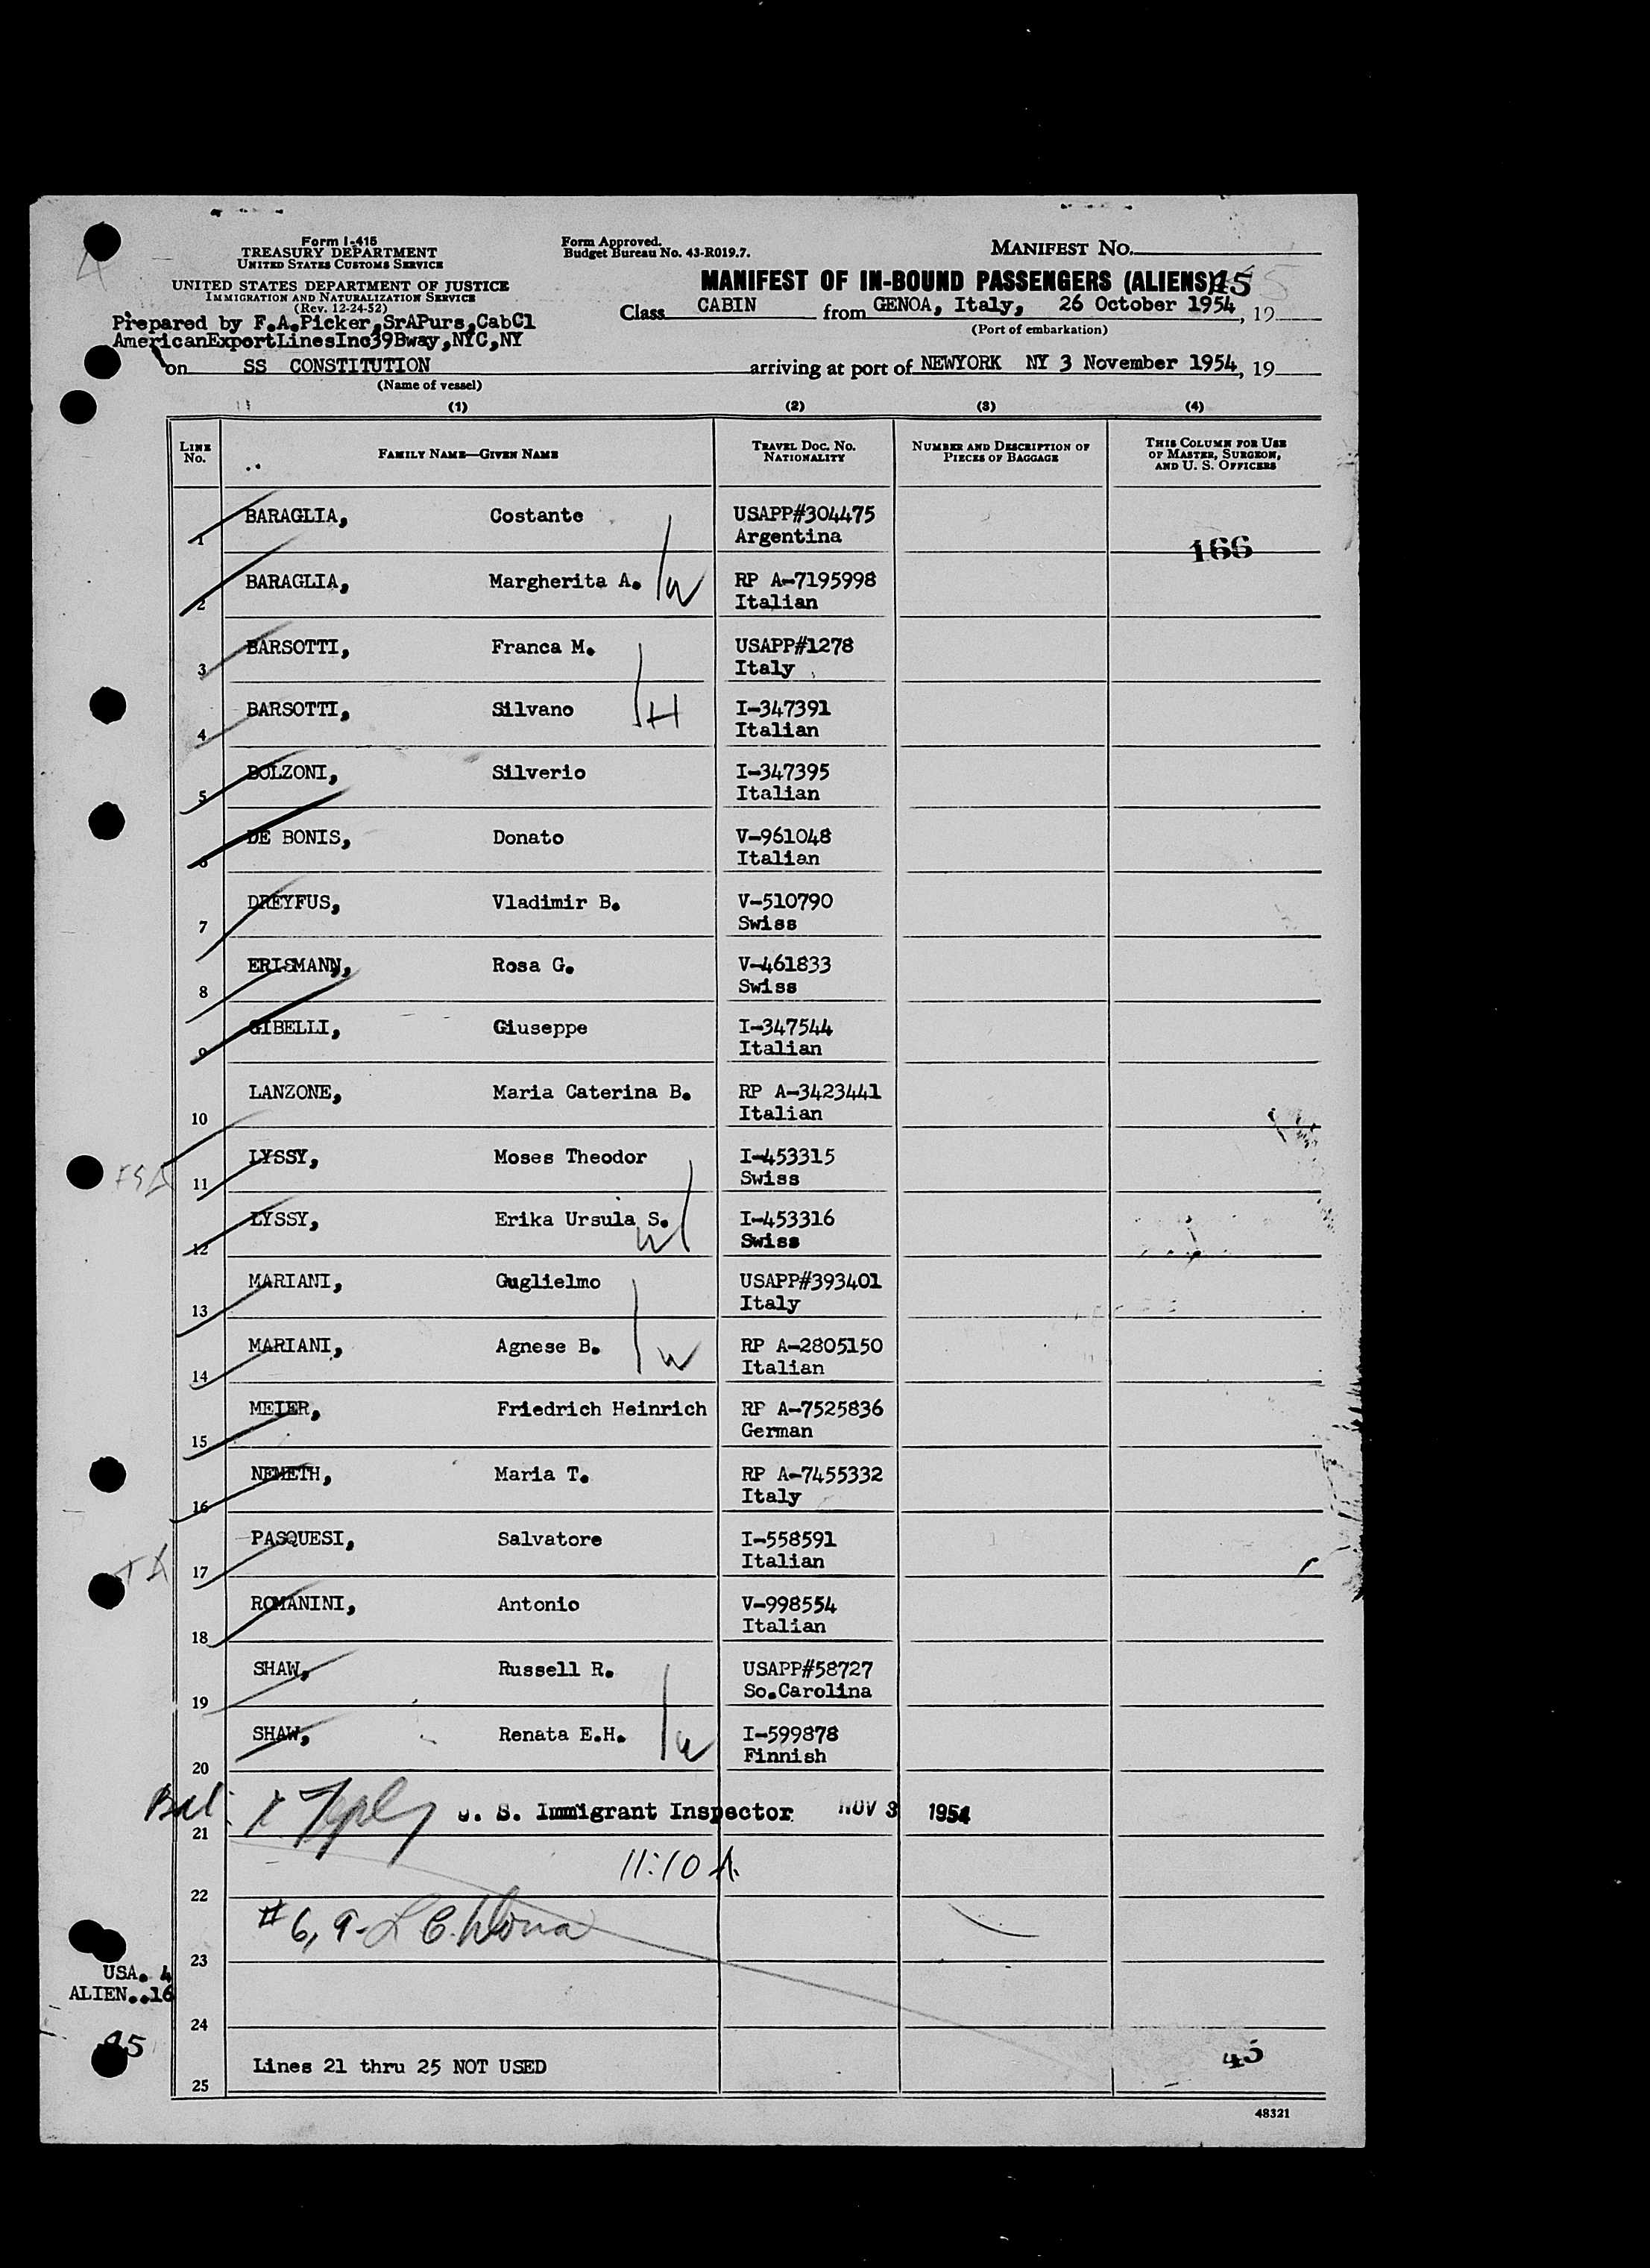 Form I-415
TREASURY DEPARTMENT
UNITED STATES CUSTOMS SERVICE
UNITED STATES DEPARTMENT OF JUSTICE
IMMIGRATION AND NATURALIZATION SERVICE
(Rev. 12-24-52)
Prepared by F.A.Picker,SrAPurs,CabCl
AmericanExportLinesInc39Bway,NYC,NY
Form Approved.
Budget Bureau No. 43-R019.7.
MANIFEST NO.
MANIFEST OF IN-BOUND PASSENGERS (ALIENS) 45
Class CABIN from GENOA, Italy, 26 October 1954, 19
(Port of embarkation)
on SS CONSTITUTION arriving at port of NEWYORK NY 3 November 1954, 19
(Name of vessel)
(1) (2) (3) (4)
LINE NO. FAMILY NAME—GIVEN NAME TRAVEL DOC. NO. NATIONALITY NUMBER AND DESCRIPTION OF PIECES OF BAGGAGE THIS COLUMN FOR USE OF MASTER, SURGEON, AND U. S. OFFICERS
1 BARAGLIA, Costante USAPP#304475
Argentina 166
2 BARAGLIA, Margherita A. W RP A-7195998
Italian
3 BARSOTTI, Franca M. USAPP#1278
Italy
4 BARSOTTI, Silvano H I-347391
Italian
5 BOLZONI, Silverio I-347395
Italian
6 DE BONIS, Donato V-961048
Italian
7 DREYFUS, Vladimir B. V-510790
Swiss
8 ERISMANN, Rosa G. V-461833
Swiss
9 GIBELLI, Giuseppe I-347544
Italian
10 LANZONE, Maria Caterina B. RP A-3423441
Italian
11 LYSSY, Moses Theodor I-453315
Swiss
12 LYSSY, Erika Ursula S. W I-453316
Swiss
13 MARIANI, Guglielmo USAPP#393401
Italy
14 MARIANI, Agnese B. W RP A-2805150
Italian
15 MEIER, Friedrich Heinrich RP A-7525836
German
16 NEMETH, Maria T. RP A-7455332
Italy
17 PASQUESI, Salvatore I-558591
Italian
18 ROMANINI, Antonio V-998554
Italian
19 SHAW, Russell R. USAPP#58727
So.Carolina
20 SHAW, Renata E.H. W I-599878
Finnish
Bal
21 U. S. Immigrant Inspector NOV 3 1954
11:10 A.
22
#6, 9-
23
USA. 4
ALIEN..16
24
45
Lines 21 thru 25 NOT USED 45
25
48321